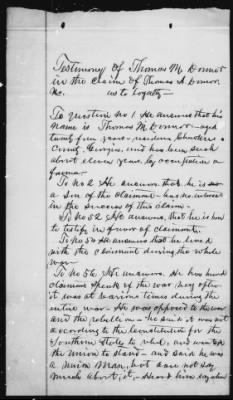 Testimony of Thomas M. Donner
in the claim of Thomas A. Donner,
as to Loyalty—
To question No 1 He answers that his
name is Thomas M. Donner — aged
twenty five years, residence Cherokee
County, Georgia, and has been such
about eleven years, by occupation a
farmer
To No 2 He answers that he is
a son of the claimant – has no interest
in the success of this claim.
To No 52 He answers, that he is here
to testify in favor of claimant.
To No 54 He answers that he lived
with the claimant during the whole
war.
To No 56 He answers. He has heard
claimant speak of the war very often
it was at various times during the
entire war. He was opposed to the war
and the rebellion – he said it was not
according to the Constitution for the
Southern States to rebel, and wanted
the Union to stand – and said he was
a Union Man, but dare not say
much about it, – Heard him say when